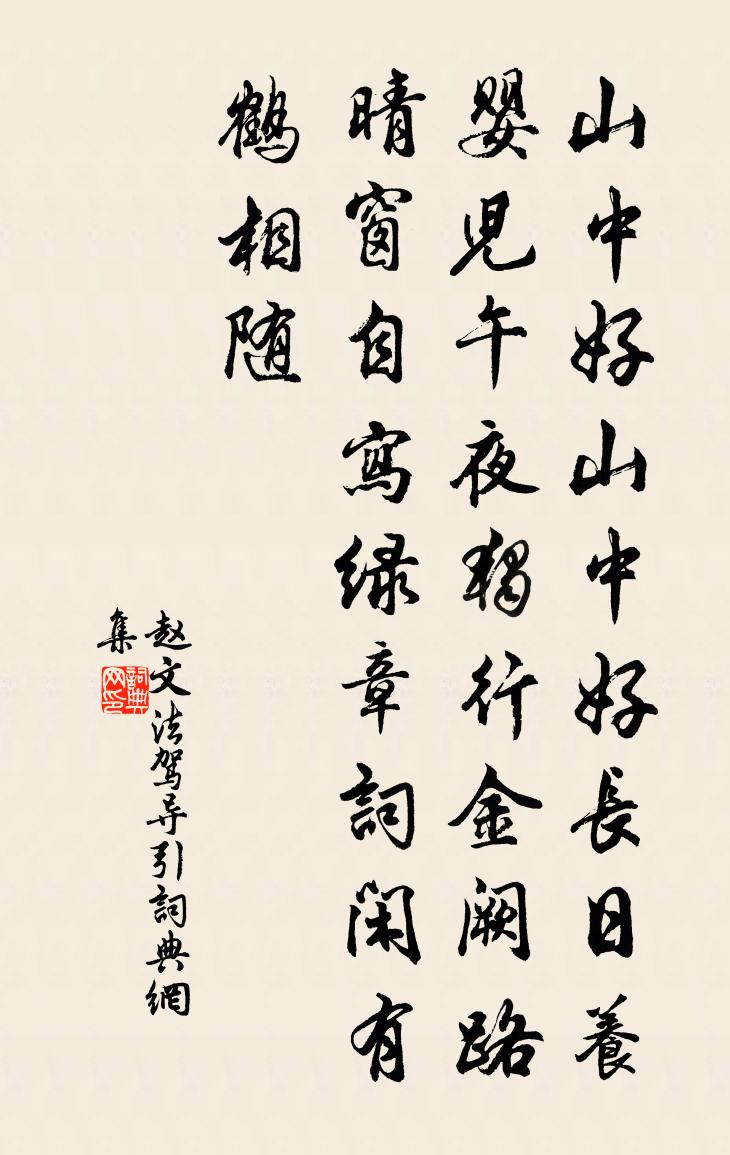 山中好山中好長日養
嬰児午夜獨行金阙路
晴窗自寫绿章詞闲有
鶴相随
赵文法驾导引詞典網
集
詞典
网印